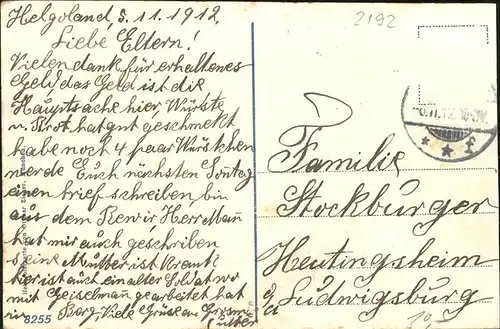 Helgoland, 5.11.1912.
Liebe Eltern!
Vielen dank für erhaltenes
Geld, das Geld ist die
Hauptsache hier, Würste
u. Brot hat gut geschmekt
habe noch 4 paar Würstchen
werde Euch nächsten Sonntag
einen brief schreiben, bin
aus dem Revir, Herr Mann
hat mir auch geschrieben
seine Mutter ist Krank
hier ist auch ein alter Soldat wo
mit Geiselmann gearbeitet hat
in Berg, Viele Grüse an Grosm
utter
8255
2192
11.12. 10-
Familie
Stockburger
Heutingsheim
O/A Ludwigsburg
10